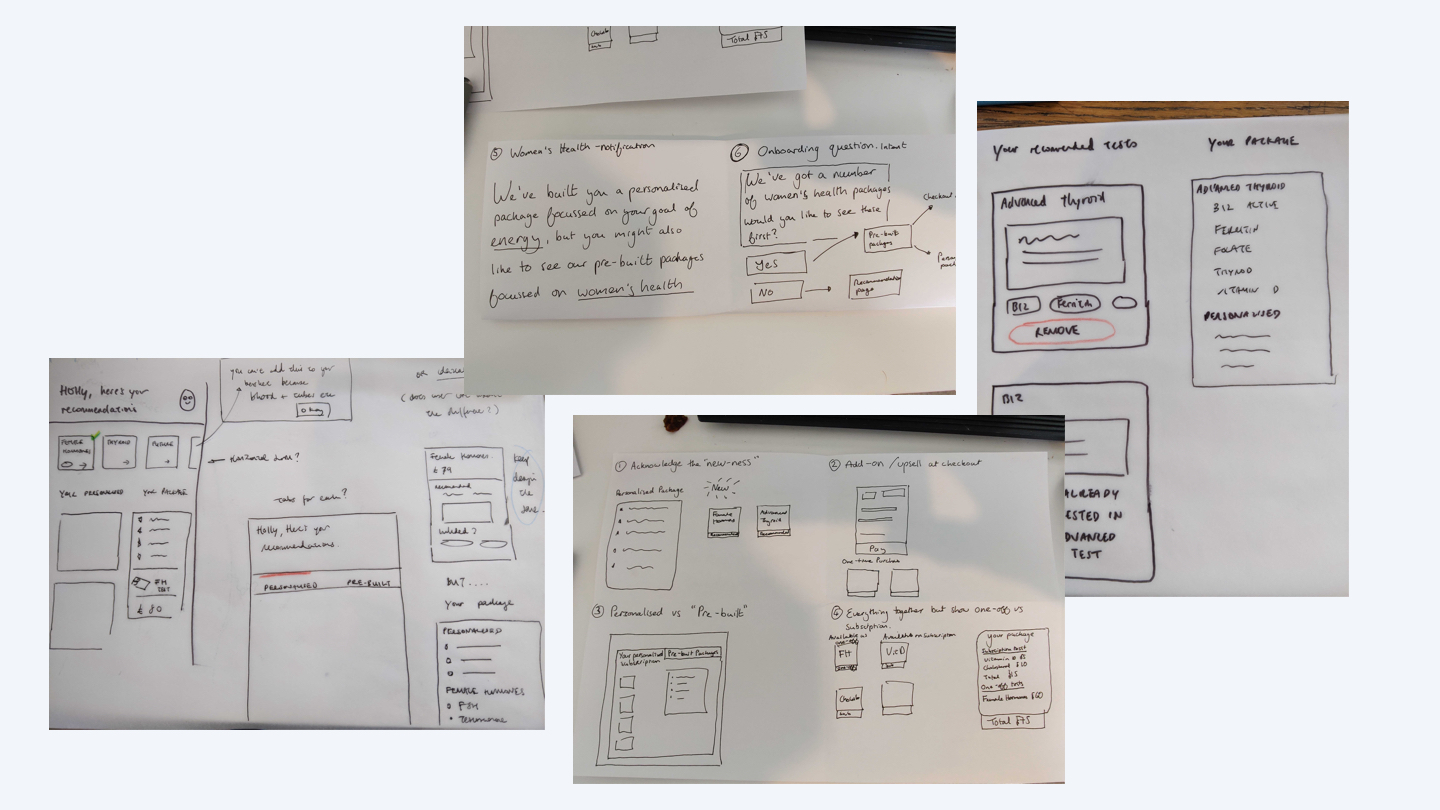 Total £75
⑤ Women's Health -notification
We've built you a personalised
package focussed on your goal of
energy, but you might also
like to see our pre-built packages
focussed on women's health
⑥ Onboarding question. Intent
We've got a number
of women's health packages
would you like to see these
first?
Yes
No
Pre-built
packages
Recommendation
page
Checkout
Your recomended tests
Advanced Thyroid
B12
Ferritin
REMOVE
B12
ALREADY
TESTED IN
ADVANCED
TEST
YOUR PACKAGE
ADVANCED THYROID
B12 ACTIVE
FERRITIN
FOLATE
THYROID
VITAMIN D
PERSONALISED
Holly, here's your
recommendations
THYROID
YOUR PERSONALISED
YOUR PACKAGE
FH
TEST
£ 80
you can't add this to your
basket because
Okay
Horizontal scroll?
Tabs for each?
Holly, Here's your
recommendations.
PERSONALISED
PRE-BUILT
the difference?)
Female Hormones.
£ 79
recomended
included?
keep
design
the
same
BUT....
Your package
PERSONALISED
FEMALE HORMONES
FSH
Testosterone
① Acknowledge the "new-ness"
Personalised Package
New
Female
Hormones
Recommended
Advanced
Thyroid
Recommended
② Add-on /upsell at checkout
Pay
One-time Purchase
③ Personalised vs "Pre-built"
Your personalised
subscription
Pre-built Packages
④ Everything together but show one-off vs
Subscription.
Available as
one-off
Available on Subscription
FH
Vit D
your package
Subscription Test
Vitamin D £5
Cholesterol £10
Total £15
One-off tests
Female Hormone £60
Total £75